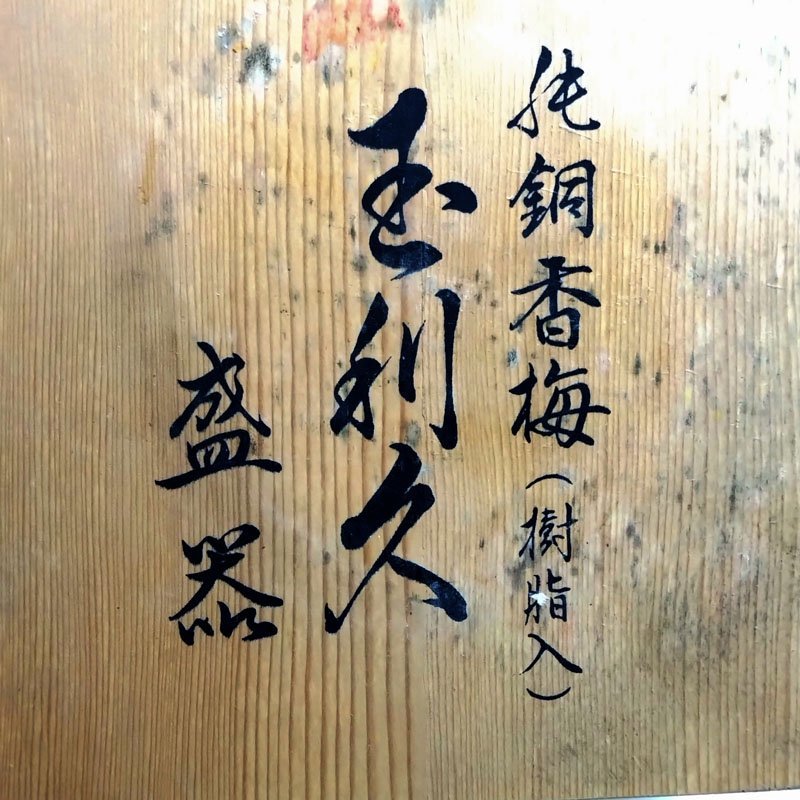 純銅香梅（樹脂入）
玉利久
盛器